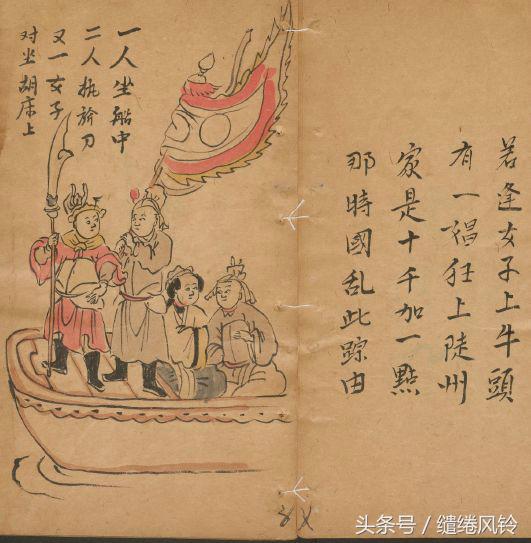 若逢女子上牛頭
有一狂上陡州
家是十千加一點
那時國乱此踪由
一人坐船中
二人执於刀
又一女子
对坐胡床上
头条号/缱绻风铃